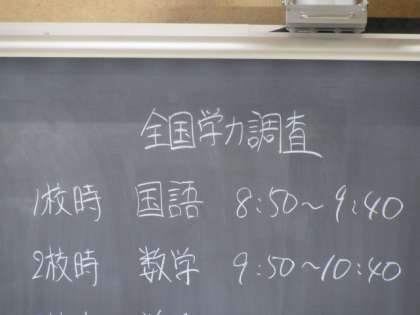 全国学力調査
1校時 国語 8:50〜9:40
2校時 数学 9:50〜10:40